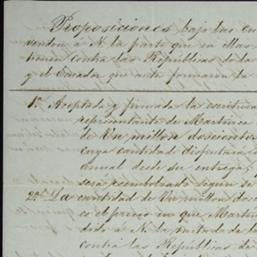 Proposiciones bajo las cu
venden a N la parte que en ellas
tienen contra las Republicas de la
y el Ecuador que ante formaron la
1ª. Aceptada y firmada la escritura
representante de Martinez
de Un millon doscientos
cuya cantidad disfrutara
annual desde su entrega,
será reembolsado segun se
2ª. La cantidad de Un millon dosc
es el precio en que Martin
dido a N la
contra las Republicas de